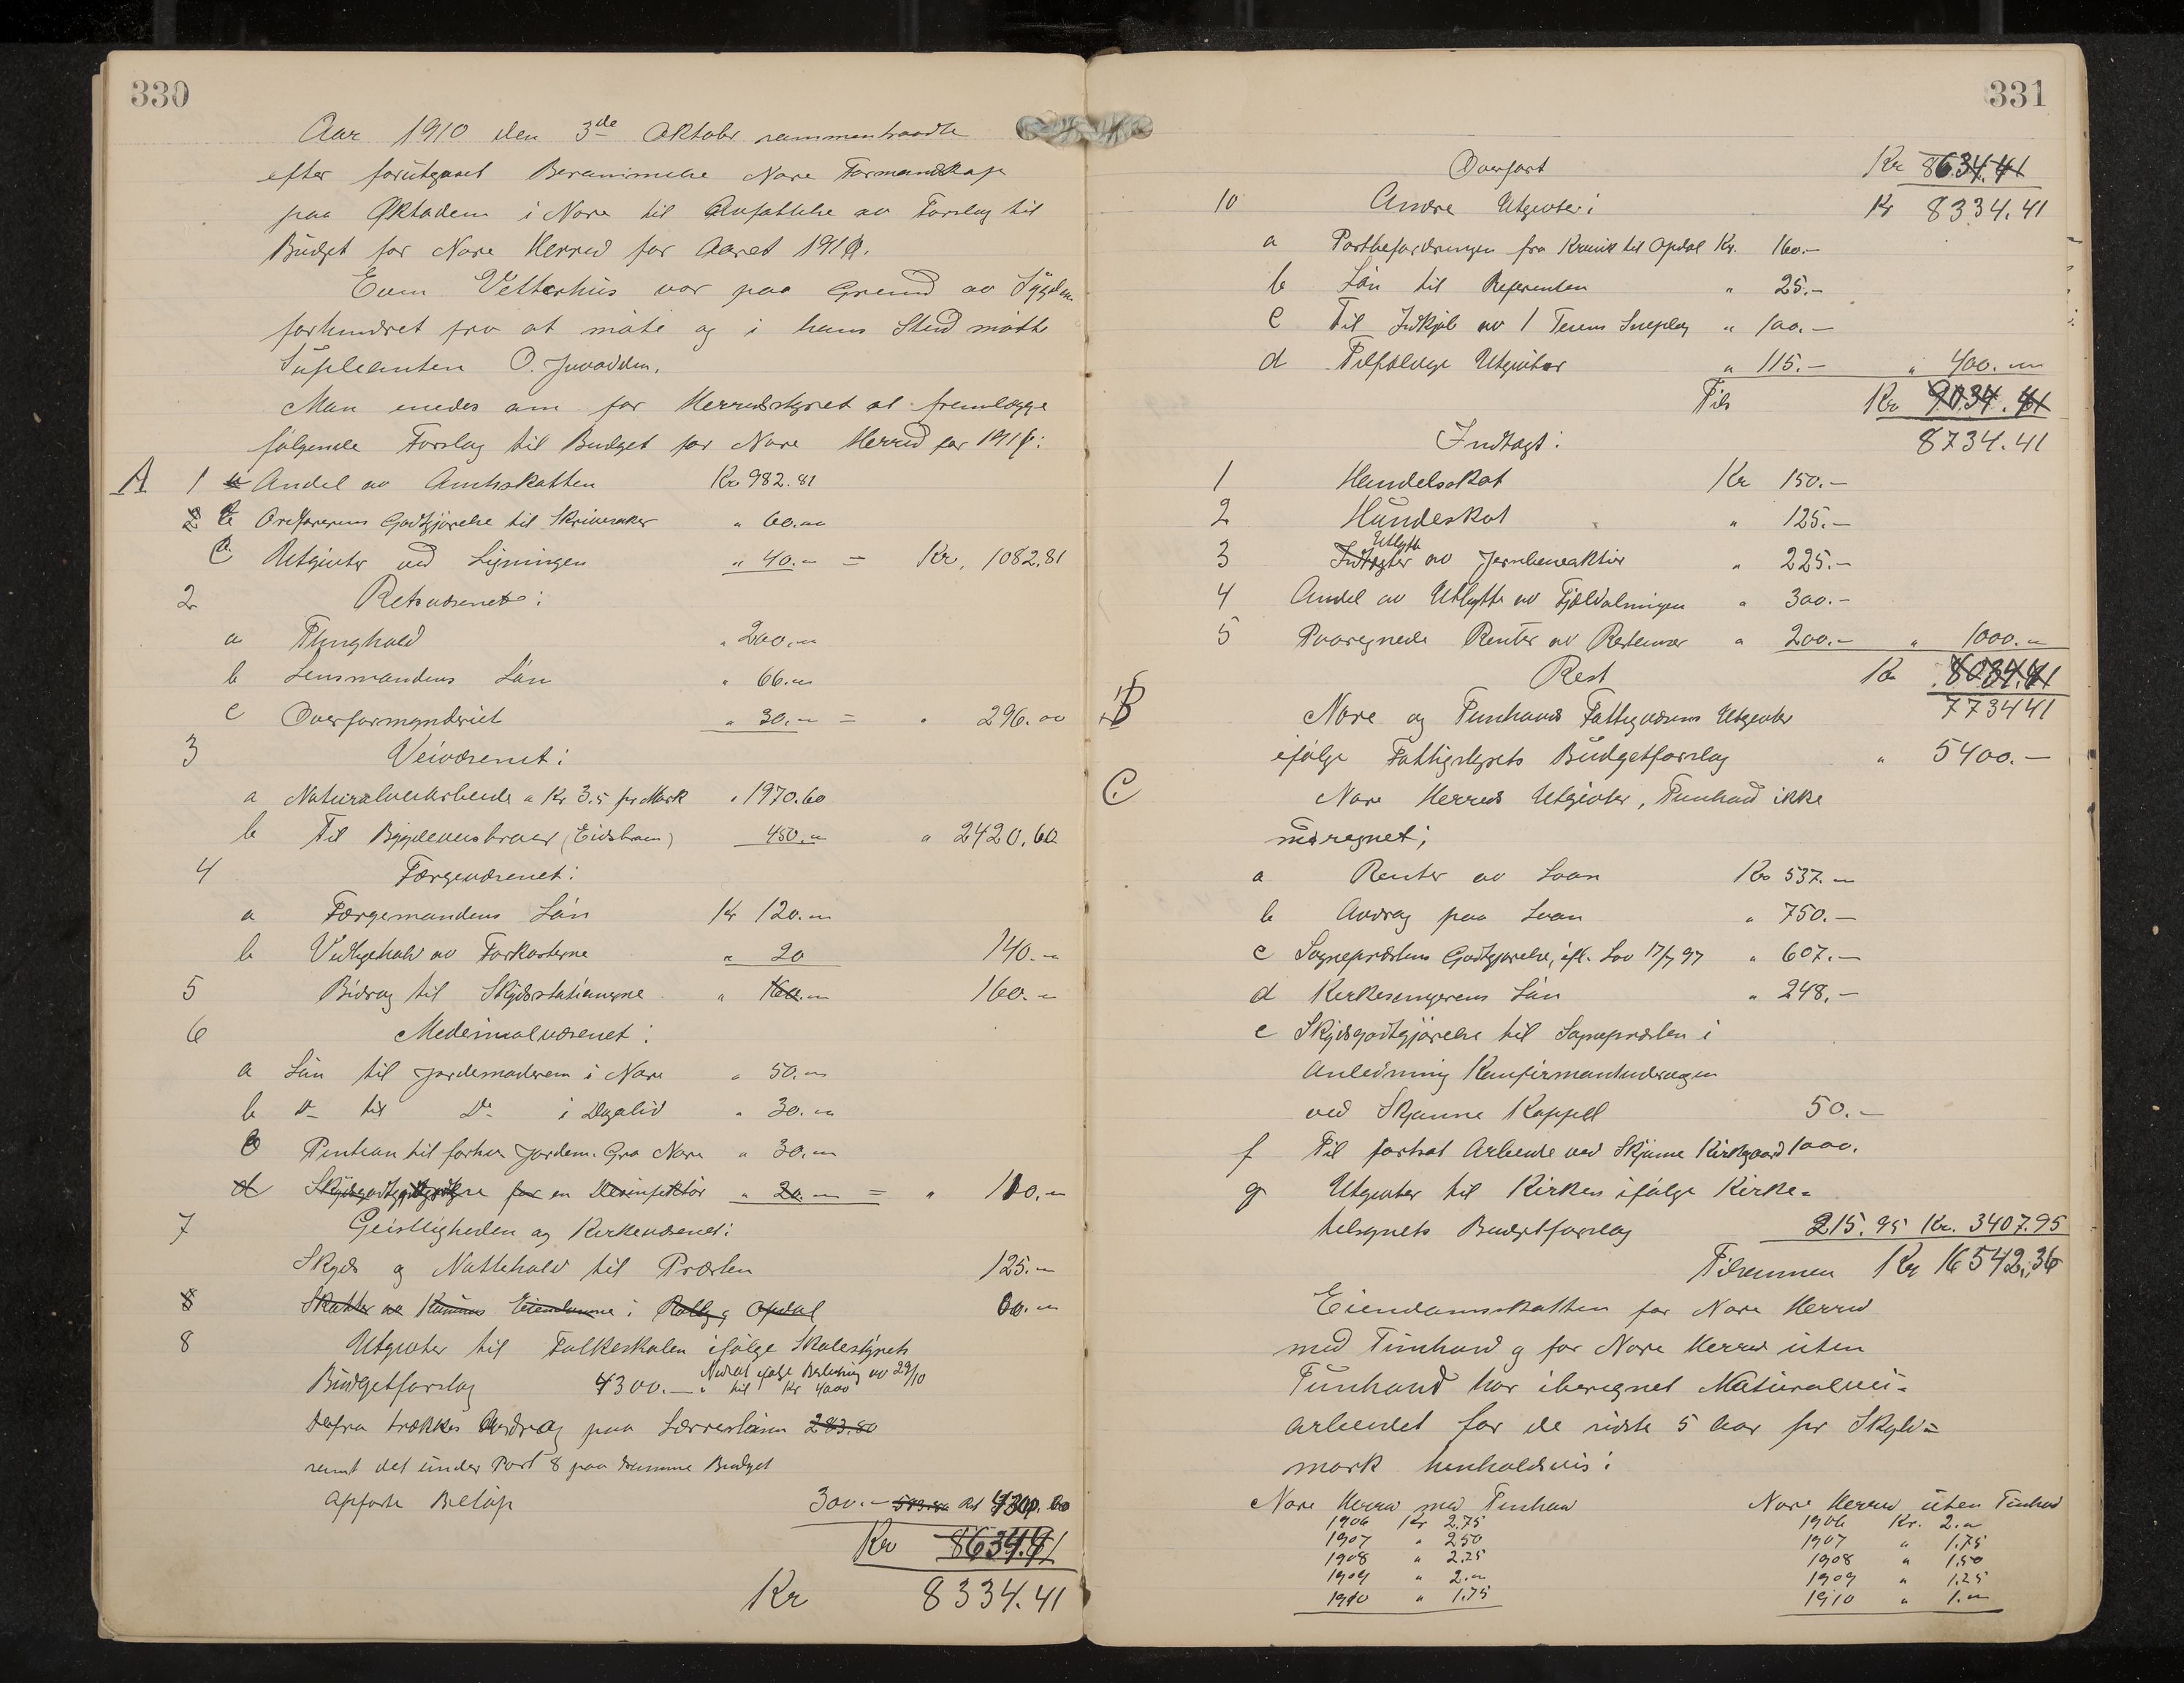 330
Aar 1910 den 3de Oktober sammentraadte
efter forutgaaet Berammelse Nore Formandskap
paa Øktedem i Nore til Avfattelse av Forslag til
Büdget for Nore Herred for Aaret 1911.
Even Vetterhüs var paa Grund av Sÿgdom
forhindret fra at møte og i hans Sted møtte
Süpleanten O. Juvodden.
Man enedes om for Herredstyret at fremlægge
følgende Forslag til Budget for Nore Herred for 1911:
A 1 a Andel av Amtsskatten Kr 982.81
2 b Ordførerens Godtgjørelse til Skrivesaker " 60.00
c Utgivter ved Ligningen " 40.- = Kr. 1082.81
2 Retsvæsenet:
a Thinghold " 200.-
b Lensmandens Løn " 66.-
c Overformynderiet " 30.- = " 296.00
3 Veivæsenet:
a Naturalveiarbeide a Kr 3.5 pr Mark " 1970.60
b Til Bygdeveisbroer (Eidsbroen) 450.- " 2420.60
4 Færgevæsenet:
a Færgemandens Løn Kr 120.-
b Vedligehold av Farkosterne " 20 140.-
5 Bidrag til Skydsstationerne " 160.- 160.-
6 Medicinalvæsenet:
a Løn til Jordemoderen i Nore " 50.-
b Do til Do i Dagalid " 30.-
c Pension til forhen Jordem. Gro Nore " 30.-
d Skydsgodtgjørelse for en Desinfektør " 20.- = " 110.-
7 Geistligheden og Kirkevæsenet:
Skyds og Nattehold til Præsten 125.-
8 Skatter av Kommunens Eiendomme i Rollag og Opdal 00.-
8 Utgivter til Folkeskolen ifølge Skolestyrets
Büdgetforslag 4300.- Nedsat ifølge Beslutning av 29/10
" til Kr 4000
Derfra trækkes Avdrag paa Lærerløsnn 283.80
samt det ünder Post 8 paa samme Budget
opførte Beløp 300.- 583.80 Rest 4300.00
Kr 8634.41
Kr 8334.41
331
Overført Kr 8634.41
10 Andre Utgivter: Kr 8334.41
a Postbefordringen fra Kravik til Opdal Kr. 160.-
b Løn til Referenten " 25.-
c Til Indkjøb av 1 Tems Sneplog " 100.-
d Tilfældige Utgivter " 115.- " 400.-
Tils Kr 9034.41
Indtægt: 8734.41
1 Handelsskat Kr 150.-
2 Hündeskat " 125.-
3 Indtægter Utbytte av Jernbaneaktier " 225.-
4 Andel av Utbytte av Fjeldalmingen " 300.-
5 Paaregnede Renter av Restancer " 200.- " 1000.-
Rest Kr 8034.41
7734 41
B Nore og Tunhovds Fattigvæsens Utgivter
ifølge Fattigstyrets Büdgetforslag " 5400.-
C Nore Herreds Utgivter, Tunhovd ikke
medregnet;
a Renter av Laan Kr 537.-
b Avdrag paa Laan " 750.-
c Sogneprestens Godtgjørelse, ifl. Lov 17/7 97 " 607.-
d Kirkesangerens Løn " 248.-
e Skydsgodtgjørelse til Sognepræsten i
Anledning Konfirmantundragn
ved Skjønne Kappell 50.-
f Til fortsat Arbeide ved Skjønne Kirkegaard 1000.
g Utgivter til Kirken ifølge Kirke-
tilsynets Budgetforslag 215.95 Kr. 3407.95
Tilsammen Kr 16542.36
Eiendomsskatten for Nore Herred
med Tünhovd og for Nore Herred üten
Tünhovd har iberegnet Naturalvei-
arbeidet for de sidste 5 Aar pr Skyld-
mark henholdsvis:
Nore Herred med Tunhovd
1906 Kr 2.75
1907 " 2.50
1908 " 2.25
1909 " 2.-
1910 " 1.75
Nore Herred üten Tünhovd
1906 Kr. 2.-
1907 " 1.75
1908 " 1.50
1909 " 1.25
1910 " 1.-